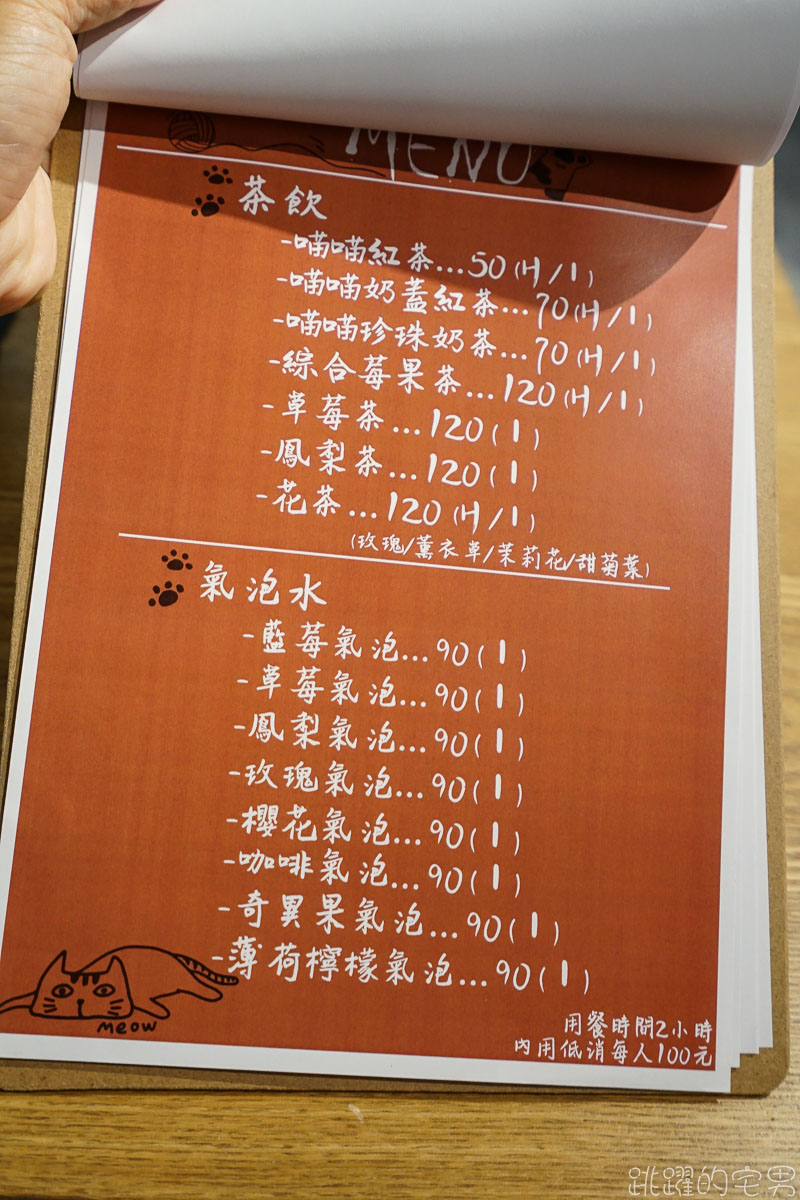 MENU
茶飲
-喵喵紅茶...50(H/I)
-喵喵奶蓋紅茶...70(H/I)
-喵喵珍珠奶茶...70(H/I)
-綜合莓果茶...120(H/I)
-草莓茶...120(I)
-鳳梨茶...120(I)
-花茶...120(H/I)
(玫瑰/薰衣草/茉莉花/甜菊葉)
氣泡水
-藍莓氣泡...90(I)
-草莓氣泡...90(I)
-鳳梨氣泡...90(I)
-玫瑰氣泡...90(I)
-櫻花氣泡...90(I)
-咖啡氣泡...90(I)
-奇異果氣泡...90(I)
-薄荷檸檬氣泡...90(I)
meow
用餐時間2小時
內用低消每人100元
跳躍的宅男